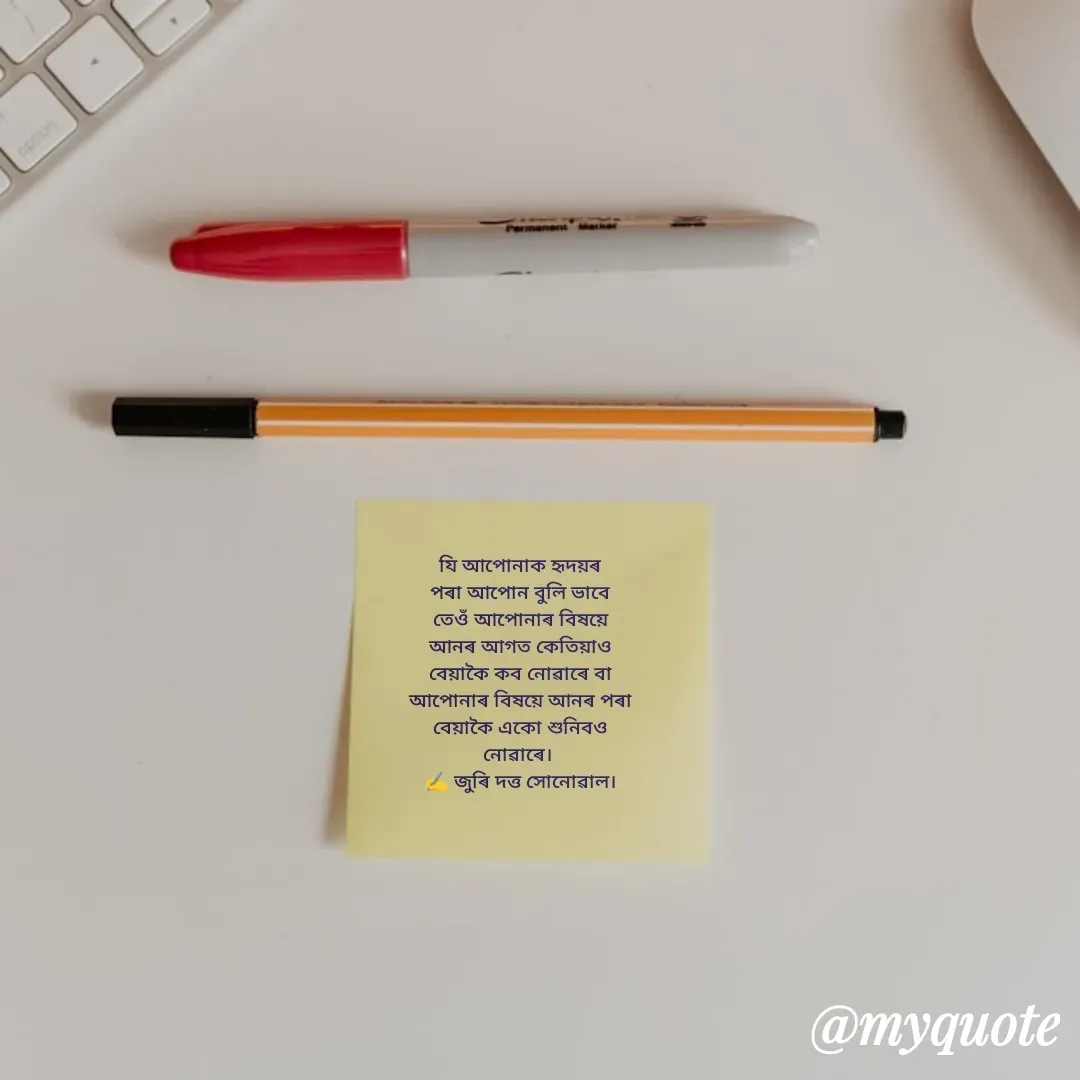 option
Permanent Marker
যি আপোনাক হৃদয়ৰ
পৰা আপোন বুলি ভাবে
তেওঁ আপোনাৰ বিষয়ে
আনৰ আগত কেতিয়াও
বেয়াকৈ কব নোৱাৰে বা
আপোনাৰ বিষয়ে আনৰ পৰা
বেয়াকৈ একো শুনিবও
নোৱাৰে।
✍️ জুৰি দত্ত সোনোৱাল।
@myquote